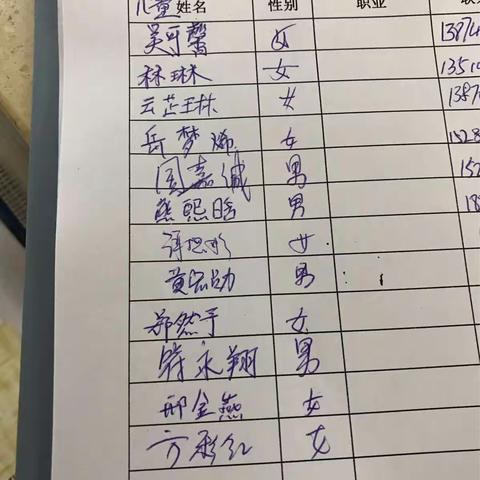 儿童姓名 性别 职业
吴可馨 女 1387
林琳 女 1351
云芷琳 女 1387
岳梦烯 女 1528
周嘉诚 男 152
熊熙晗 男 18
谭思彤 女
黄宏勋 男
郑然予 女
符永翔 男
邢金燕 女
方彩红 女